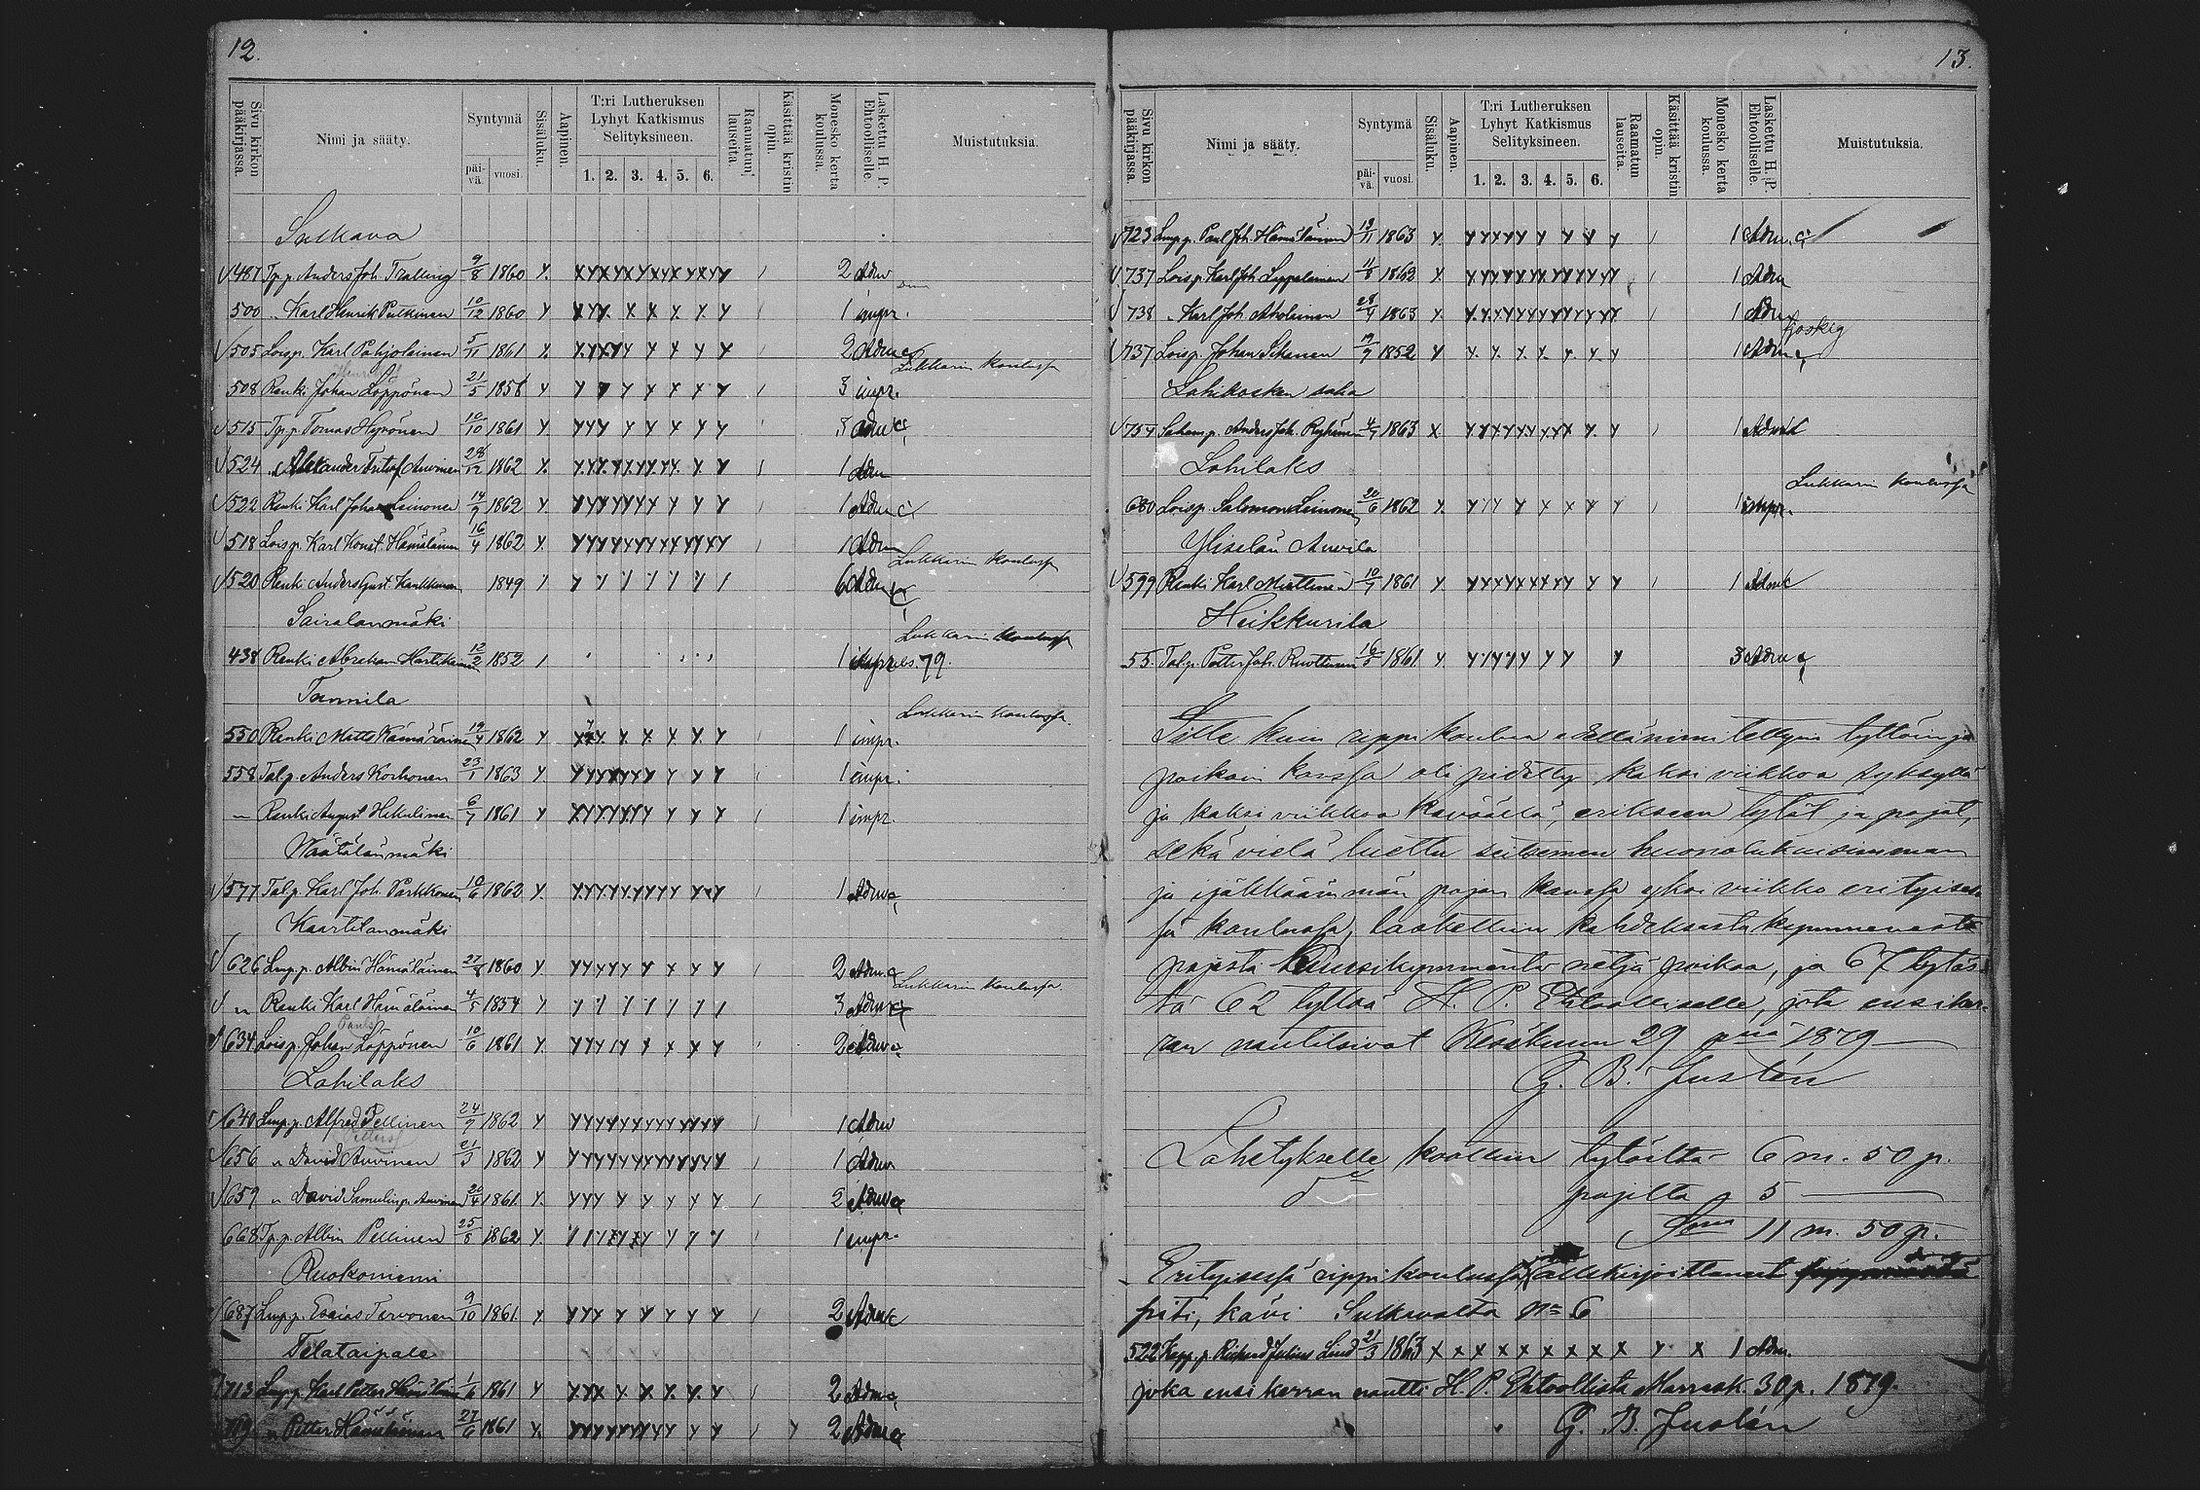 12.
Sivu kirkon pääkirjassa. Nimi ja sääty. Syntymä päivä. vuosi. Sisäluku. Aapinen. T:ri Lutheruksen Lyhyt Katkismus Selityksineen. 1. 2. 3. 4. 5. 6. Raamatun lauseita. Käsittää kristin opin. Monesko kerta koulussa. Laskettu H. P. Ehtoolliselle. Muistutuksia.
Sulkava
487 Tp.p. Anders Joh. Tralling 9/8 1860 2 Adm
500 " Karl Henrik Putkinen 10/12 1860 1 impr.
505 Loisp. Karl Pohjolainen 5/11 1861 2 Adm
508 Renki Johan Löppönen 21/5 1858 3 impr. Lukkarin koulussa
515 Tp.p. Tomas Hyrönen 10/10 1861 3 Adm
524 " Alexander Fritof Auvinen 28/12 1862 1 Adm
522 Renki Karl Johan Leinonen 14/9 1862 1 Adm
518 Loisp. Karl Konst. Hämäläinen 16/4 1862 1 Adm
520 Renki Anders Gust. Karkkunen 1849 6 Adm Lukkarin koulussa
Sairalanmäki
438 Renki Abraham Hartikainen 12/2 1852 1 Lukkarin koulussa 79.
Tammila
550 Renki Matts Kämäräinen 19/4 1862 1 impr. Lukkarin koulussa.
558 Tal.p. Anders Korhonen 23/1 1863 1 impr.
— Renki August 6/7 1861 1 impr.
Väätälänmäki
577 Tal.p. Karl Joh. Parkkonen 10/6 1862 1 Adm
Kaartilanmäki
626 Lmp.p. Albin Hämäläinen 27/8 1860 2 Adm
" Renki Karl Hämäläinen 4/5 1854 3 Adm Lukkarin koulussa.
634 Loisp. Johan Löppönen 10/6 1861 2 Adm
Lohilaks
640 Lmp.p. Alfred Pellinen 24/9 1862 1 Adm
656 " David Auvinen 21/3 1862 1 Adm
659 " David Samulinp. Auvinen 20/4 1861 2 Adm
668 Tp.p. Albin Pellinen 25/8 1862 1 impr.
Ruokoniemi
687 Lmp.p. Esaias Tervonen 9/10 1861 2 Adm
Telataipale
713 Lmp.p. Karl Petter Hämäläinen 1/6 1861 2 Adm
719 " Petter Hämäläinen 27/6 1861 2 Adm
13.
Sivu kirkon pääkirjassa. Nimi ja sääty. Syntymä päivä. vuosi. Sisäluku. Aapinen. T:ri Lutheruksen Lyhyt Katkismus Selityksineen. 1. 2. 3. 4. 5. 6. Raamatun lauseita. Käsittää kristin opin. Monesko kerta koulussa. Laskettu H. P. Ehtoolliselle. Muistutuksia.
723 Lmp.p. Paul Joh. Hämäläinen 19/11 1863 1 Adm.
737 Loisp. Karl Joh. Leppalainen 4/8 1863 1 Adm
738 " Karl Joh. Aholainen 28/4 1863 1 Adm
737 Loisp. Johan Sikanen 19/9 1852 1 Adm
Lohikosken saha
754 Anders Joh. 4/7 1863 1 Adm
Lohilaks
680 Loisp. Salomon Leinonen 20/6 1862 1 impr. Lukkarin koulussa
Yliselän Auvila
599 Renki Karl Miettinen 10/7 1861 1 Adm
Heikkurila
55. Tal.p. Petter Joh. Ruottinen 16/5 1861 3 Adm
Sitte kuin rippikoulua edellänimitettyin tyttöin ja
poikain kanssa oli pidetty kaksi viikkoa syksyllä
ja kaksi viikkoa keväällä, erikseen tytöt ja pojat,
sekä vielä luettu seitsemen huonolukuisimman
ja ijäkkäämmän pojan kanssa yksi viikko erityises-
sä koulussa, laskettiin kahdeksastakymmenestä
pojasta kuusikymmentä neljä poikaa, ja 67 tytös-
tä 62 tyttöä H. P. Ehtoolliselle, jota ensiker-
ran nautitsivat Kesäkuun 29 p:nä 1879 —
G. B. Justén
Lähetykselle koottiin tytöiltä 6 m. 50 p.
d:o pojilta 5 —
S:ma 11 m. 50 p.
Erityisessä rippikoulussa, allekirjoittanut
piti, kävi Sulkavalta N:o 6
522 Kapp.p. Richard Julius Lind 21/3 1863 1 Adm.
joka ensi kerran nautti H. P. Ehtoollista Marrask. 30 p. 1879.
G. B. Justén